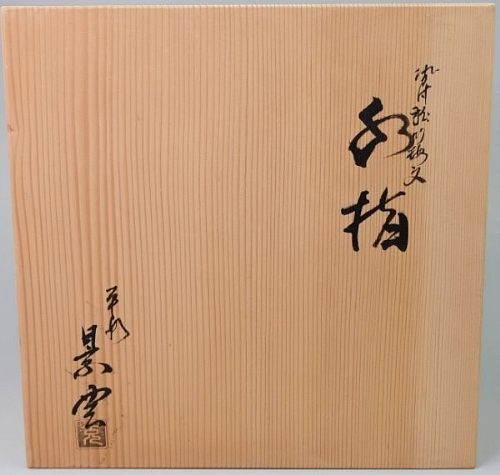 染付松竹梅文
水指
平安
景雲